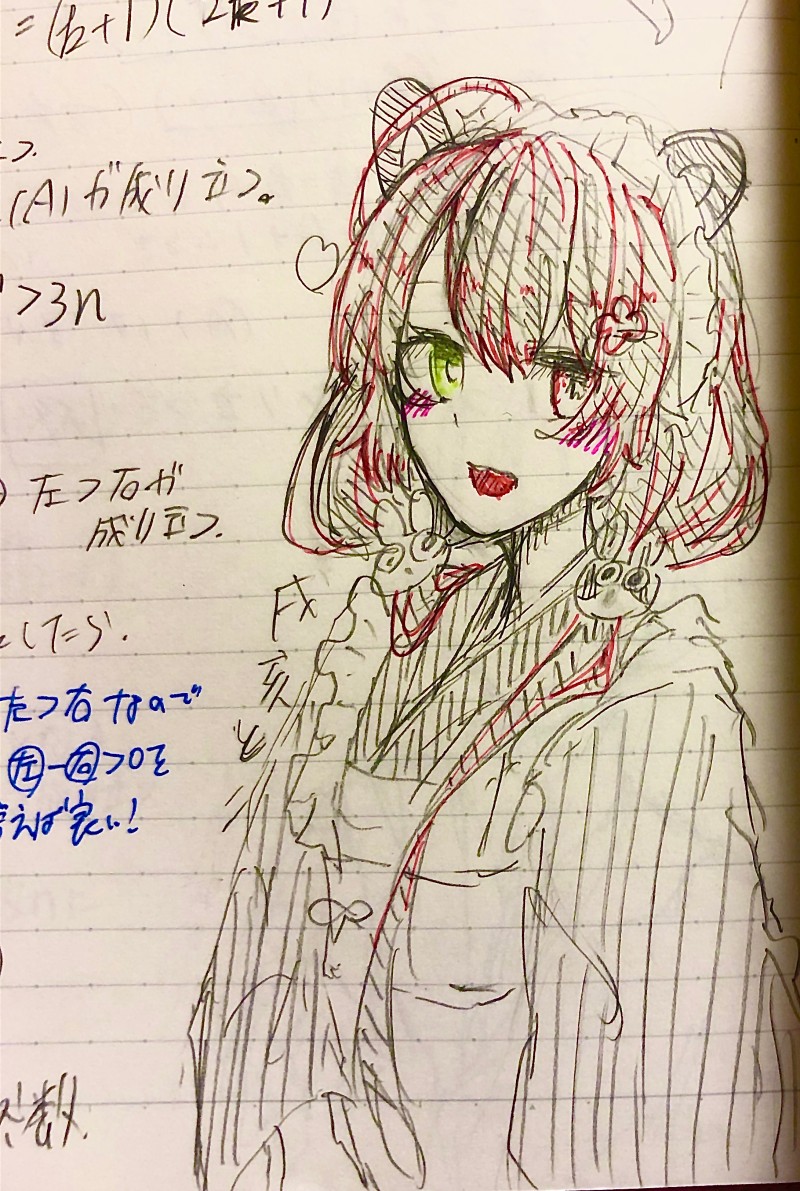 =(k+1)(2k+1)
(A)が成り立つ。
>3n
左>右が
成り立つ.
としたら.
左>右なので
左-右>0を
言えば良い!
戌
亥
と
数.